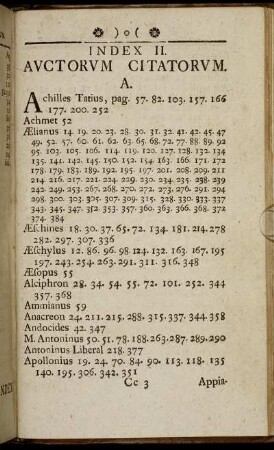 )o(
INDEX II.
AVCTORVM CITATORVM.
A.
Achilles Tatius, pag. 57. 82. 103. 157. 166
177. 200. 252
Achmet 52
Ælianus 14. 19. 20. 23. 28. 30. 31. 32. 41. 42. 45. 47
49. 52. 57. 60. 61. 62. 63. 65. 68. 72. 77. 88. 89. 92
95. 103. 105. 106. 114. 119. 120. 127. 128. 132. 134
135. 141. 142. 145. 150. 152. 154. 163. 166. 171. 172
178. 179. 183. 189. 192. 195. 197. 201. 208. 209. 211
214. 216. 217. 221. 224. 229. 230. 234. 235. 238. 239
242. 249. 253. 267. 268. 270. 272. 273. 276. 291. 294
298. 300. 303. 305. 307. 309. 315. 328. 330. 333. 337
343. 345. 347. 352. 353. 357. 360. 363. 366. 368. 372
374. 384
Æschines 18. 30. 37. 65. 72. 134. 181. 214. 278
282. 297. 307. 336
Æschylus 12. 86. 96. 98. 124. 132. 163. 167. 195
197. 243. 254. 263. 291. 311. 316. 348
Æsopus 55
Alciphron 28. 34. 54. 55. 72. 101. 252. 344
357. 368
Ammianus 59
Anacreon 24. 211. 215. 288. 315. 337. 344. 358
Andocides 42. 347
M. Antoninus 50. 51. 78. 188. 263. 287. 289. 290
Antoninus Liberal 218. 377
Apollonius 19. 24. 70. 84. 90. 113. 118. 135
140. 195. 306. 342. 351
Cc 3 Appia-